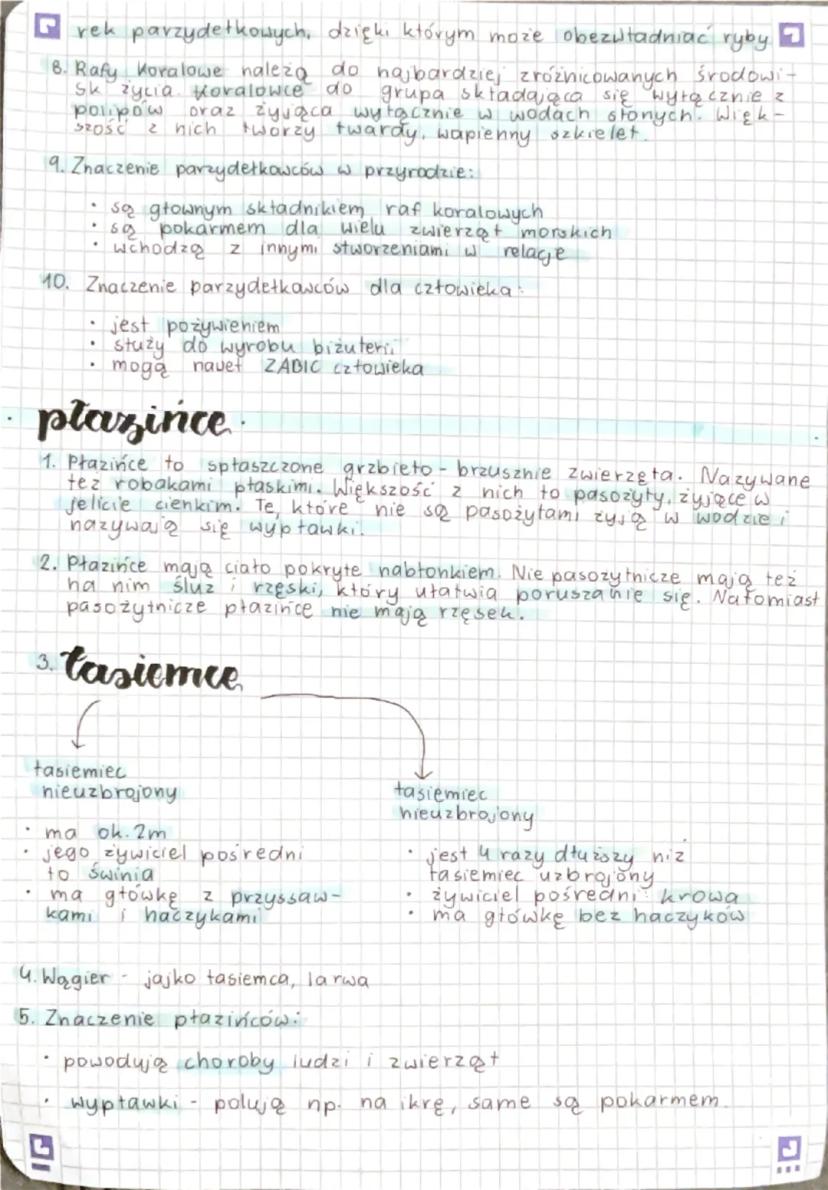 rek parzydełkowych, dzięki którym może obezwładniać ryby
8. Rafy Koralowe należą do najbardziej zróżnicowanych środowi-
sk życia. Koralowce do grupa składająca się wyłącznie z
polipów oraz żyjąca wyłącznie w wodach słonych. Więk-
szość z nich tworzy twardy, wapienny szkielet.
9. Znaczenie parzydełkowców w przyrodzie:
• są głownym składnikiem raf koralowych
• są pokarmem dla wielu zwierząt morskich
• wchodzą z innymi stworzeniami w relacje
10. Znaczenie parzydełkowców dla człowieka:
• jest pożywieniem
• służy do wyrobu biżuterii
• mogą nawet ZABIC człowieka
płazińce
1. Płazińce to spłaszczone grzbieto-brzusznie zwierzęta. Nazywane
też robakami płaskimi. Większość z nich to pasożyty, żyjące w
jelicie cienkim. Te, które nie są pasożytami żyją w wodzie i
nazywają się wypławki.
2. Płazińce mają ciało pokryte nabłonkiem. Nie pasożytnicze mają też
na nim śluz i rzęski, który ułatwia poruszanie się. Natomiast
pasożytnicze płazińce nie mają rzęsek.
3. tasiemce
tasiemiec
nieuzbrojony
• ma ok. 2m
• jego żywiciel pośredni
to świnia
• ma główkę z przyssaw-
kami i haczykami
tasiemiec
nieuzbrojony
• jest 4 razy dłuższy niż
tasiemiec uzbrojony
• żywiciel pośredni: krowa
• ma główkę bez haczyków
4. Wągier - jajko tasiemca, larwa
5. Znaczenie płazińców:
• powodują choroby ludzi i zwierząt
• wypławki - polują np. na ikrę, same są pokarmem.